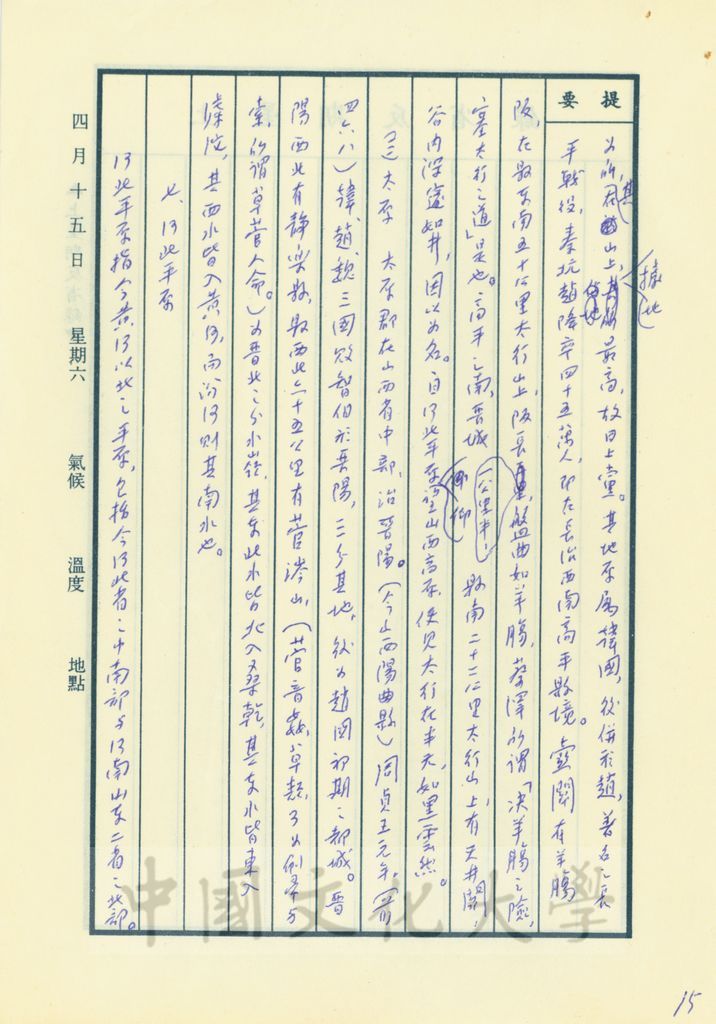 提要
為所居其山上,據地最高,故曰上黨。其地原屬韓國,後併於趙,著名之長
平戰役,秦坑趙降卒四十五萬人,即在長治西南高平縣境。壺關在羊腸
阪,在縣東南五十公里太行山上,阪長,盤曲如羊腸,蔡澤所謂「決羊腸之險,
塞太行之道」是也。高平之南,晉城縣南二十二公里太行山上,有天井關,
谷內深邃如井,因以為名。自河北平原仰望山西高原,便見太行在半天,如黑雲然。
(三)太原 太原郡在山西省中部,治晉陽。(今山西陽曲縣)周貞王元年。(前
四六八)韓、趙、魏三國敗智伯於晉陽,三分其地,後為趙國初期之都城。晉
陽西北有靜樂縣,縣西北六十五公里有菅涔山,(菅音姦,草類,可為佣葦与
索,所謂草菅人命。)為晉北之分水嶺,其東北水皆北入桑乾,其東水皆東入
滹沱,其西水皆入黃河,而汾河則其南水也。
七、河北平原
河北平原指今黃河以北之平原,包括今河北省之中南部与河南山東二省之北部。
四月十五日 星期六 氣候 溫度 地點
中國文化大學
15